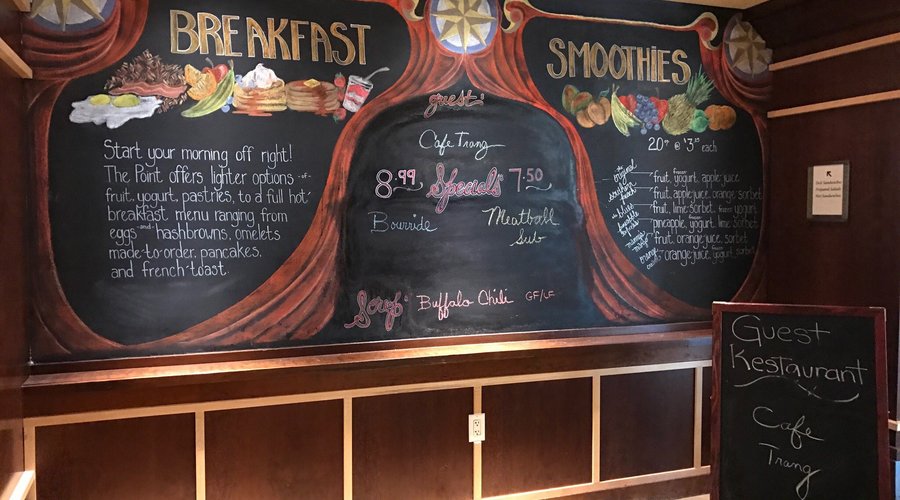 BREAKFAST
Start your morning off right!
The Point offers lighter options -of-
fruit, yogurt, pastries, to a full hot
breakfast menu ranging from
eggs and hashbrowns, omelets
made-to-order, pancakes,
and french toast.
guest
Cafe Trang
8.99 Specials 7.50
Bowride
Meatball
Sub
Soup Buffalo Chili GF/LF
SMOOTHiES
20oz @ $3.25 each
the original
fruit, frozen yogurt, apple juice
fruit, apple juice, orange, sorbet
fruit, lime sorbet, frozen yogurt
pineapple, yogurt, frozen sorbet
fruit, orange juice, sorbet
orange juice, frozen yogurt, sorbet
Deli Sandwiches
Prepared Salads
Hot Sandwiches
Guest
Restaurant
Cafe
Trang